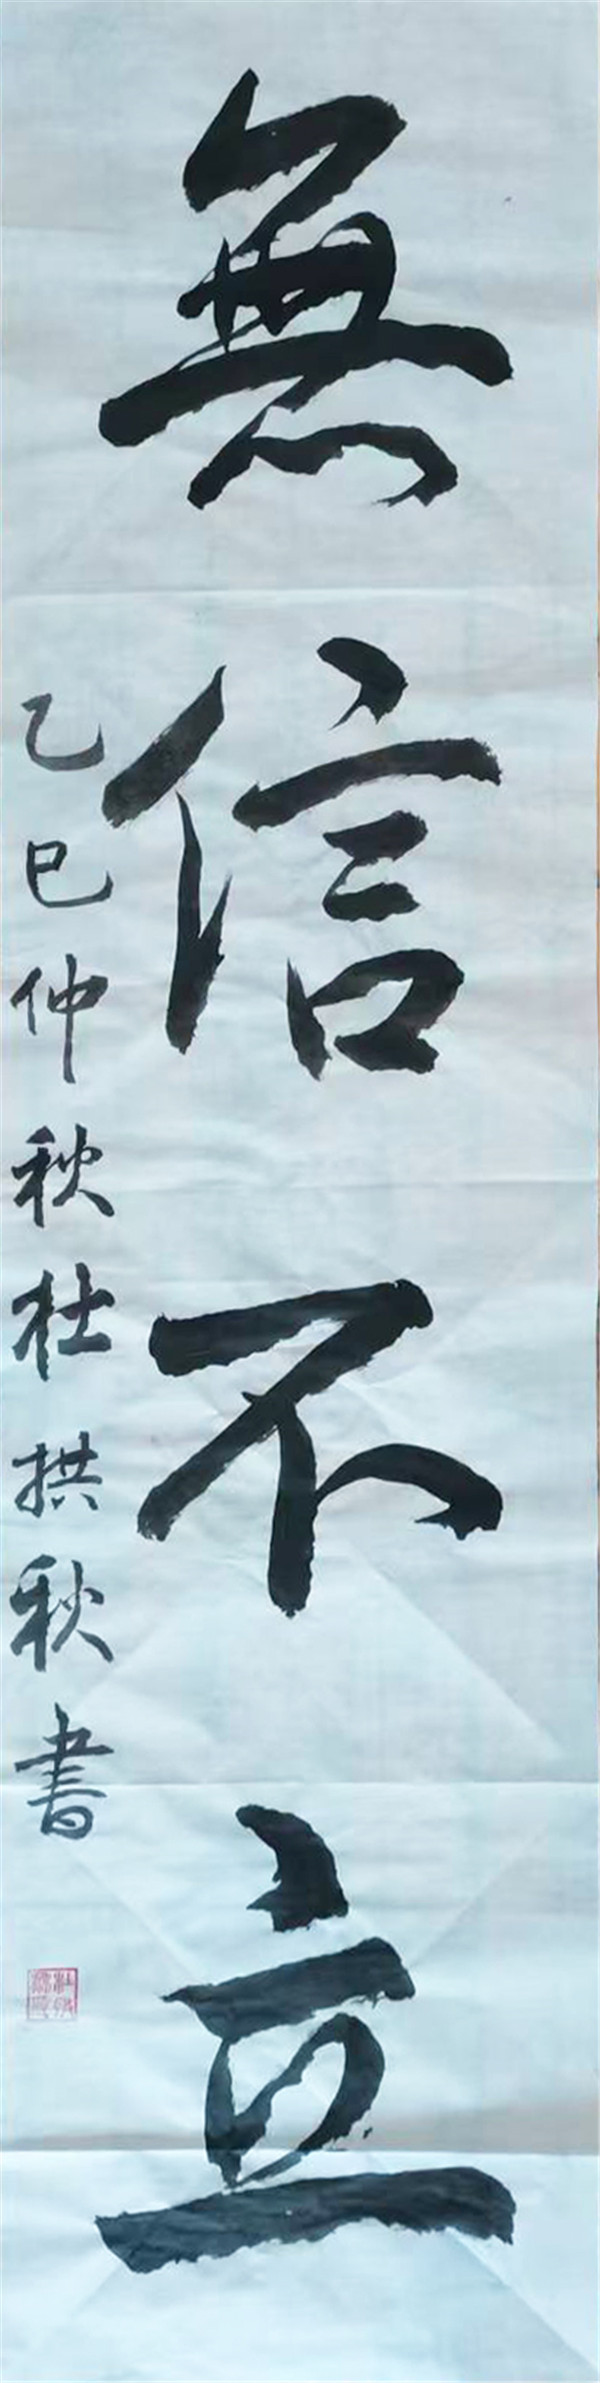 無信不立
乙巳仲秋杜拱秋書